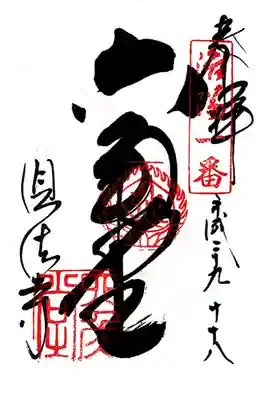 奉拝
洛陽一番
平成二九 十 十八
六角堂
頂法寺